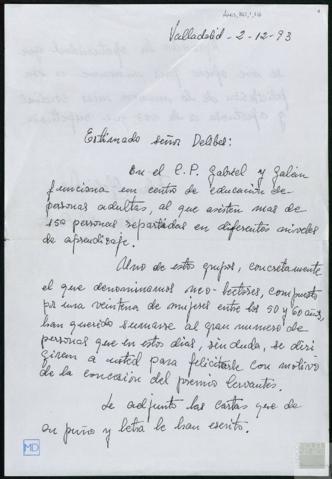 Valladolid - 2-12-93
Estimado señor Delibes:
En el C.P. Gabriel y Galán
funciona un centro de educación de
personas adultas, al que asisten mas de
150 personas repartidas en diferentes niveles
de aprendizaje.
Uno de estos grupos, concretamente
el que denominamos neo-lectores, compuesto
por una veintena de mujeres entre los 50 y 60 años,
han querido sumarse al gran numero de
personas que en estos dias, sin duda, se diri
giran a usted para felicitarle con motivo
de la concesión del premio Cervantes.
Le adjunto las cartas que de
su puño y letra le han escrito.
MD